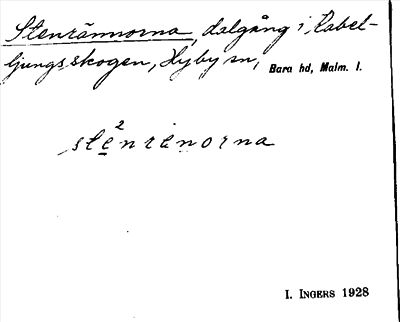 Stenrännorna, dalgång i Kabel-
ljungsskogen, Hyby sn, Bara hd, Malm. l.
ste²nrenorna
I. INGERS 1928